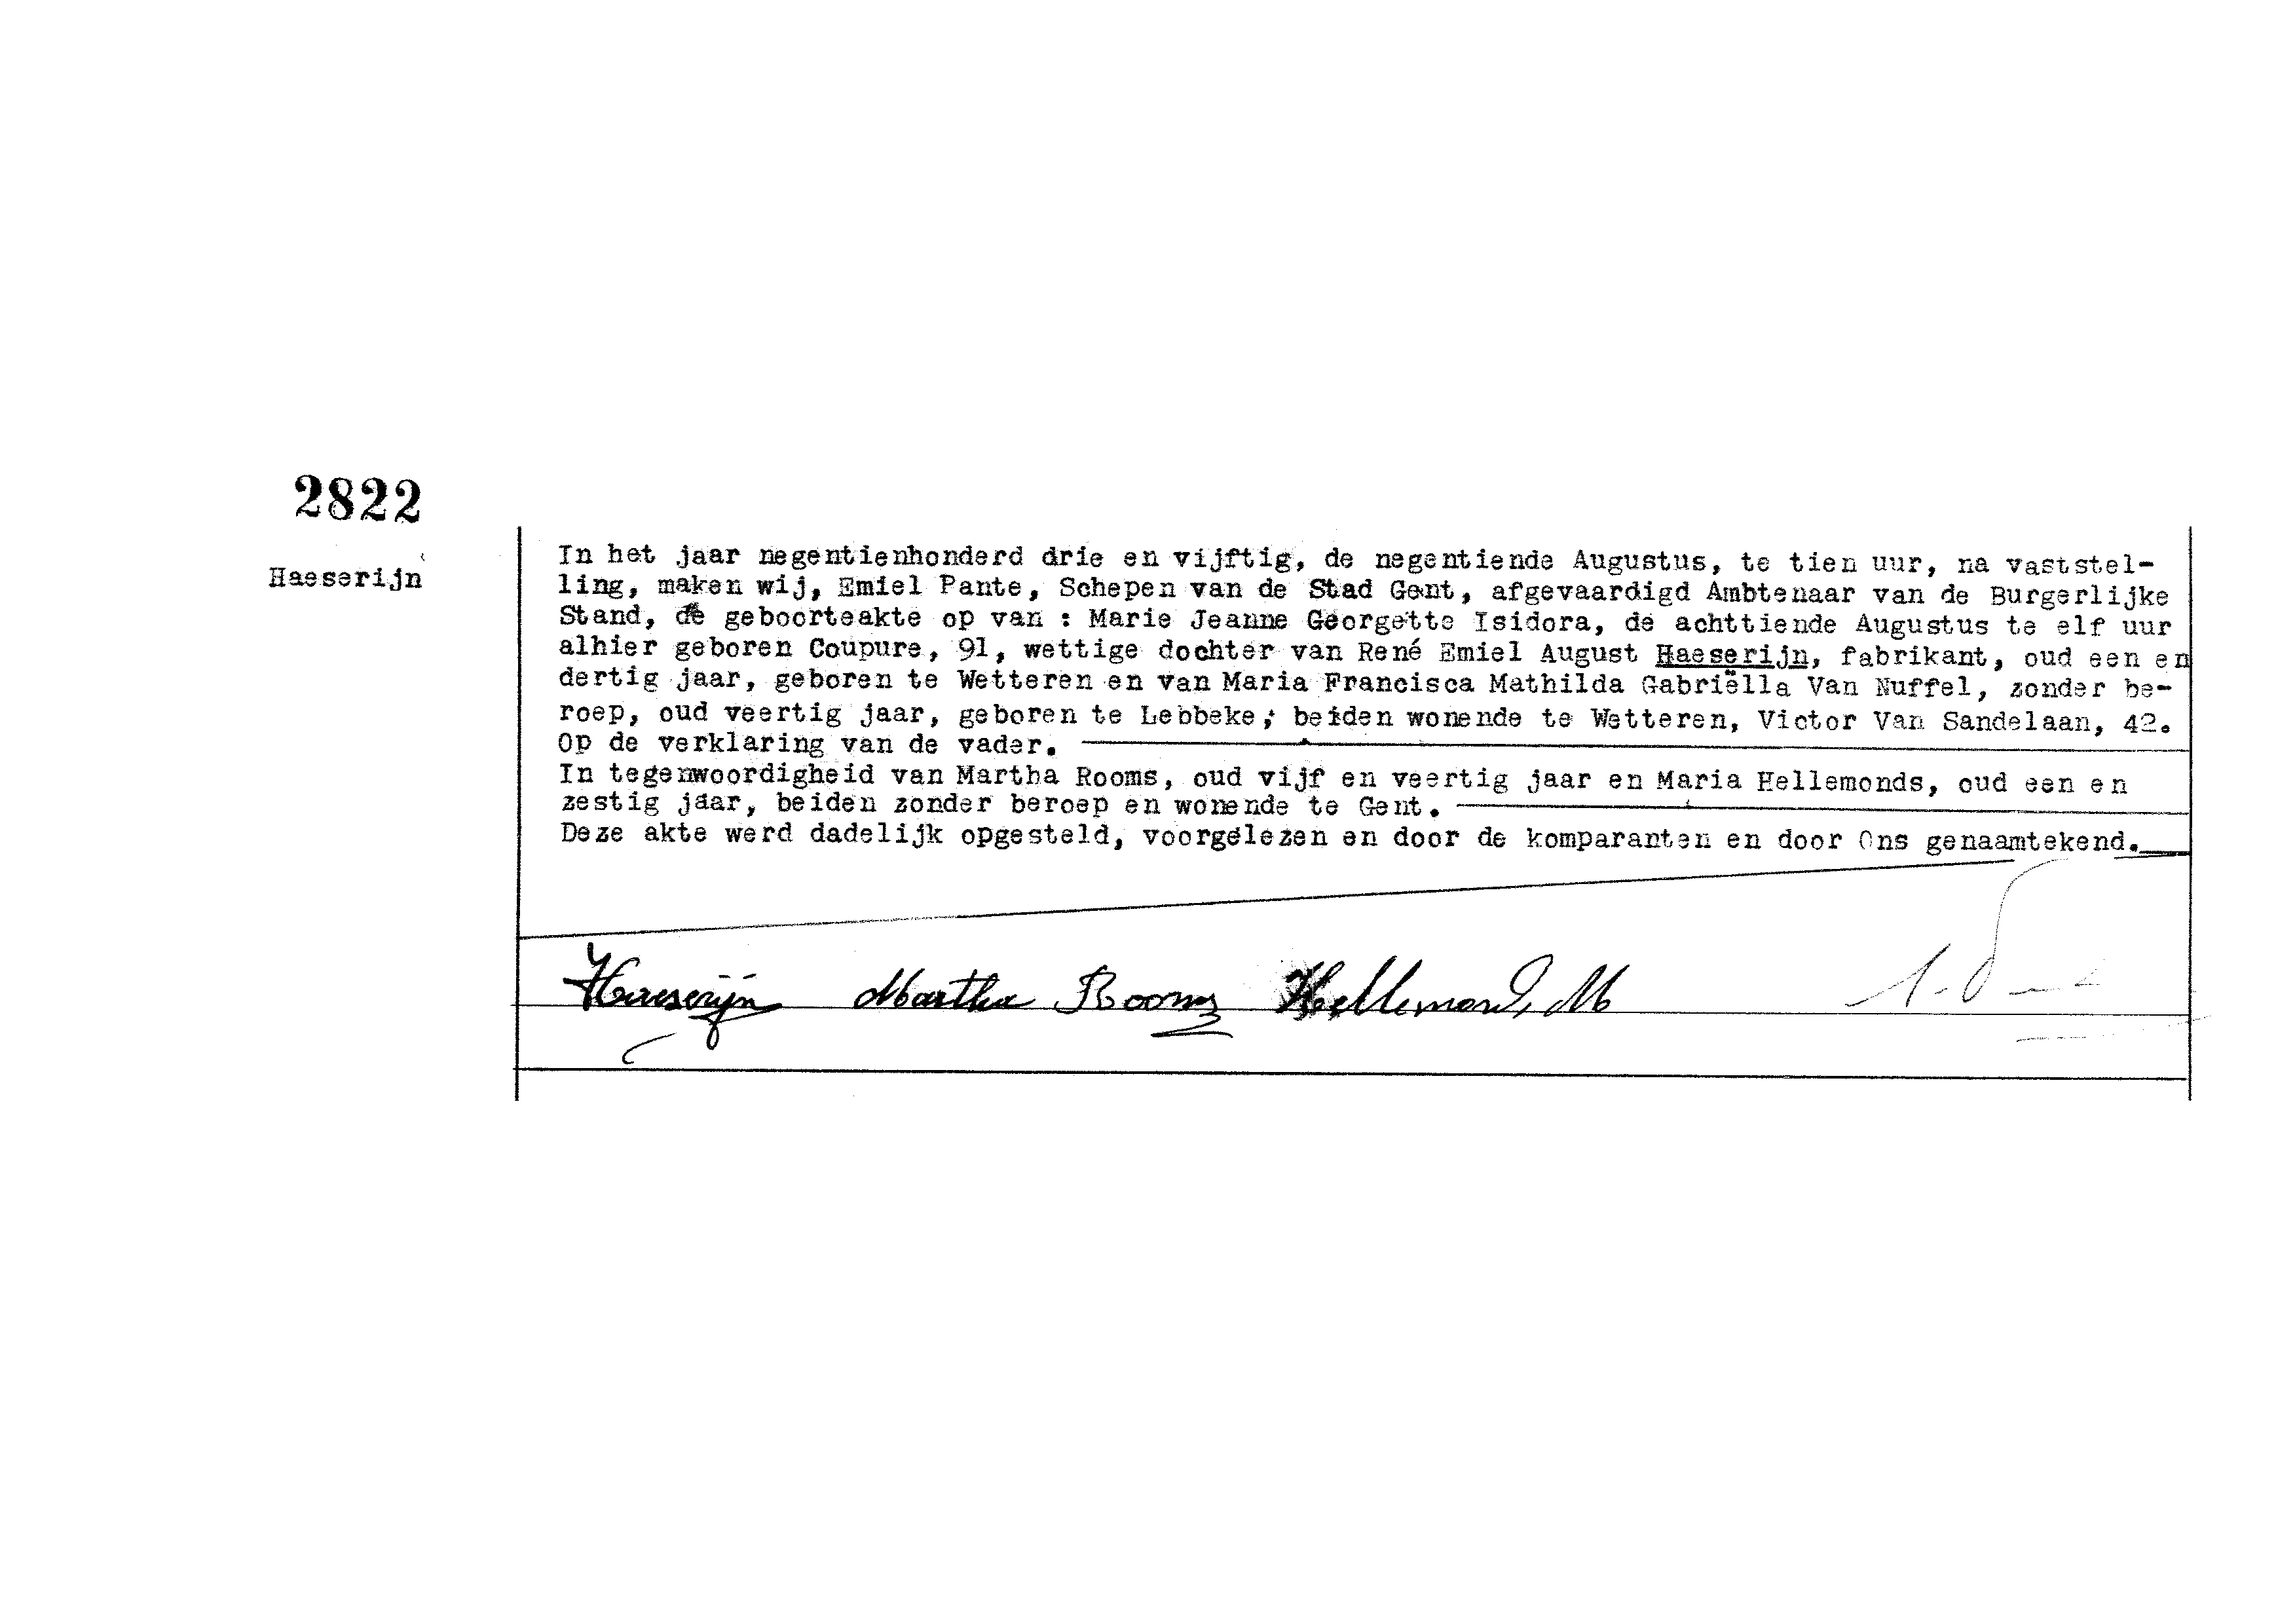 2822
Haeserijn
In het jaar negentienhonderd drie en vijftig, de negentiende Augustus, te tien uur, na vaststel-
ling, maken wij, Emiel Pante, Schepen van de Stad Gent, afgevaardigd Ambtenaar van de Burgerlijke
Stand, de geboorteakte op van : Marie Jeanne Georgette Isidora, de achttiende Augustus te elf uur
alhier geboren Coupure, 91, wettige dochter van René Emiel August Haeserijn, fabrikant, oud een en
dertig jaar, geboren te Wetteren en van Maria Francisca Mathilda Gabriëlla Van Nuffel, zonder be-
roep, oud veertig jaar, geboren te Lebbeke; beiden wonende te Wetteren, Victor Van Sandelaan, 42.
Op de verklaring van de vader.
In tegenwoordigheid van Martha Rooms, oud vijf en veertig jaar en Maria Hellemonds, oud een en
zestig jaar, beiden zonder beroep en wonende te Gent.
Deze akte werd dadelijk opgesteld, voorgelezen en door de komparanten en door Ons genaamtekend.
Haeserijn Martha Rooms Hellemonds M